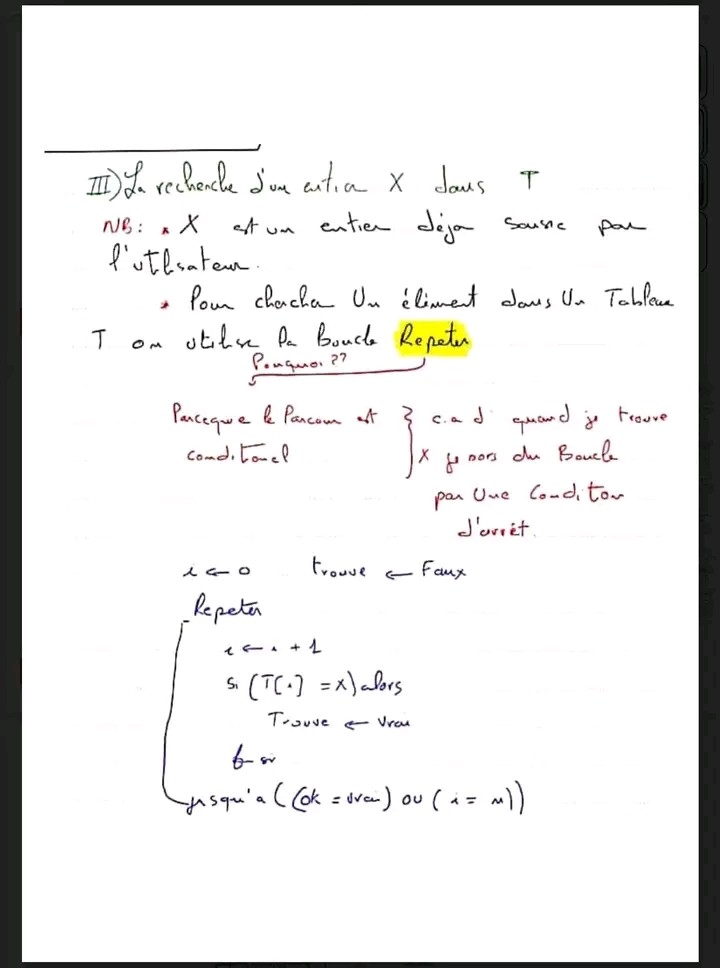 III) La recherche d'un entier X dans T
NB: * X est un entier déja saisie par
l'utlsateur.
* Pour chercher Un élément dans Un Tableau
T on utilise la Boucle Repeter
Pourquoi ??
Parceque le Parcour est } c.a d quand je trouve
conditonel X je sors du Boucle
par Une Conditon
d'arrêt.
i ← 0 trouve ← Faux
Repeter
i ← i + 1
si (T[i] = X) alors
Trouve ← vrai
fin si
jusqu'a ((ok = vrai) ou (i = n))